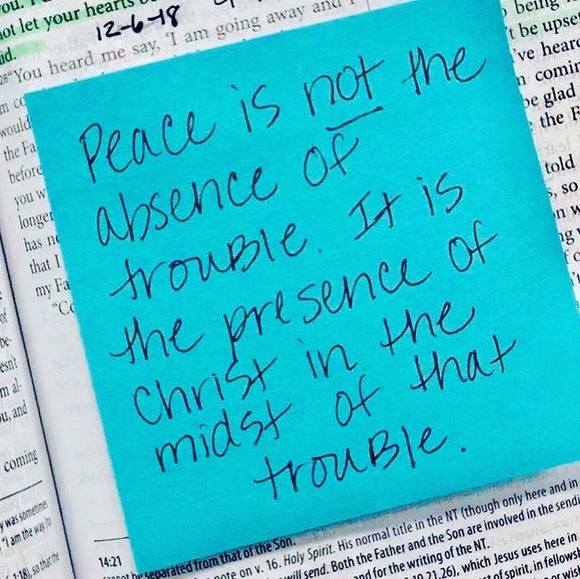 not let your hearts
12-6-18
28"You heard me say, 'I am going away and I
Peace is not the
absence of
trouble. It is
the presence of
Christ in the
midst of that
trouble.
being
't be upse
've heard
be glad
the F
told
so
would
the Fa
before
you w
longer
has no
that I
my Fa
"Co
coming
y was sometimes
"I am the way
14:21
separated from that of the Son.
note on v. 16. Holy Spirit. His normal title in the NT (though only here and in
will send. Both the Father and the Son are involved in the sendi
and for the writing of the NT.
21,26), which Jesus uses here in
of spirit, in fellows